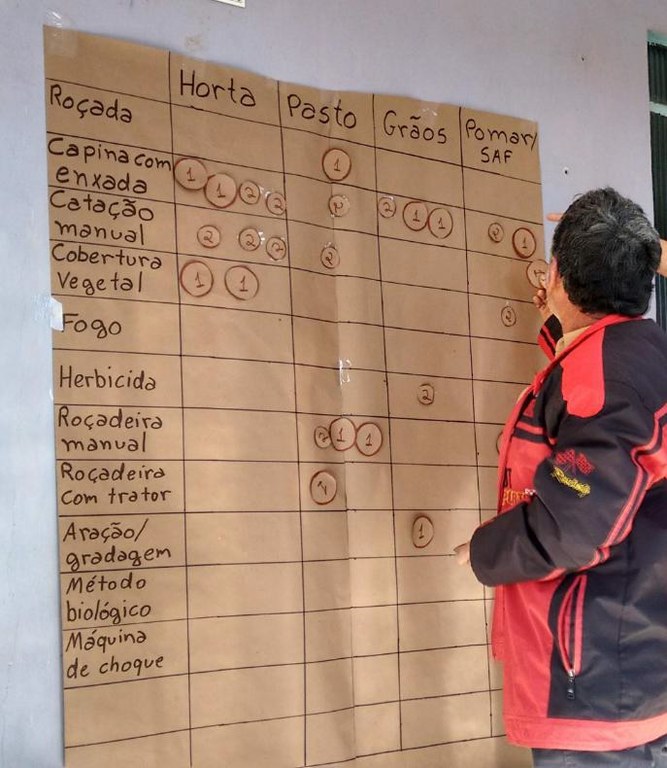 Horta Pasto Grãos Pomar/
SAF
Roçada
1
Capina com
enxada
1 1 2 2 2 2 1 1 2 1
Catação
manual
2 2 2 2
Cobertura
Vegetal
1 1 2
Fogo
Herbicida
2
Roçadeira
manual
2 1 1
Roçadeira
com trator
2
Aração/
gradagem
1
Método
biológico
Máquina
de choque